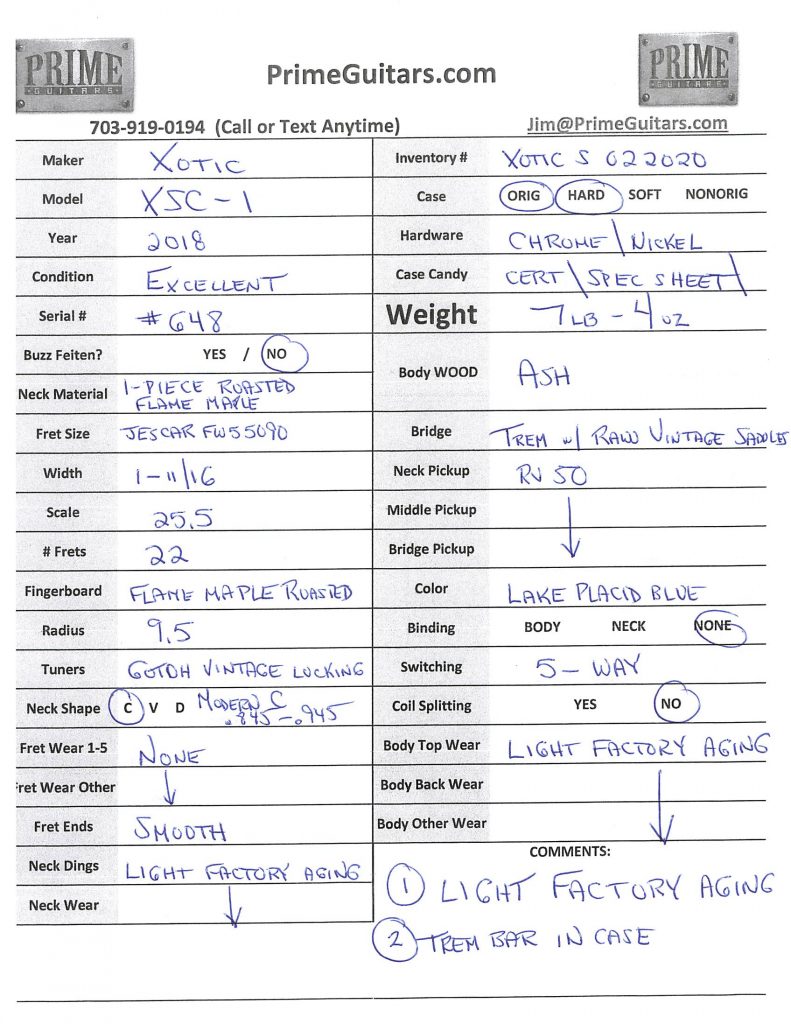 PRIME
GUITARS
PrimeGuitars.com
PRIME
GUITARS
703-919-0194 (Call or Text Anytime)
Jim@PrimeGuitars.com
Maker XOTIC
Model XSC-1
Year 2018
Condition EXCELLENT
Serial # #648
Buzz Feiten? YES / NO
Neck Material 1-PIECE ROASTED
FLAME MAPLE
Fret Size JESCAR FW55090
Width 1-11/16
Scale 25.5
# Frets 22
Fingerboard FLAME MAPLE ROASTED
Radius 9.5
Tuners GOTOH VINTAGE LOCKING
Neck Shape C V D MODERN C
.845-.945
Fret Wear 1-5 NONE
Fret Wear Other
Fret Ends SMOOTH
Neck Dings LIGHT FACTORY AGING
Neck Wear
Inventory # XOTIC S 022020
Case ORIG HARD SOFT NONORIG
Hardware CHROME\NICKEL
Case Candy CERT\SPEC SHEET\
Weight 7 LB - 4 OZ
Body WOOD ASH
Bridge TREM w/ RAW VINTAGE SADDLES
Neck Pickup RV 50
Middle Pickup
Bridge Pickup
Color LAKE PLACID BLUE
Binding BODY NECK NONE
Switching 5-WAY
Coil Splitting YES NO
Body Top Wear LIGHT FACTORY AGING
Body Back Wear
Body Other Wear
COMMENTS:
1 LIGHT FACTORY AGING
2 TREM BAR IN CASE